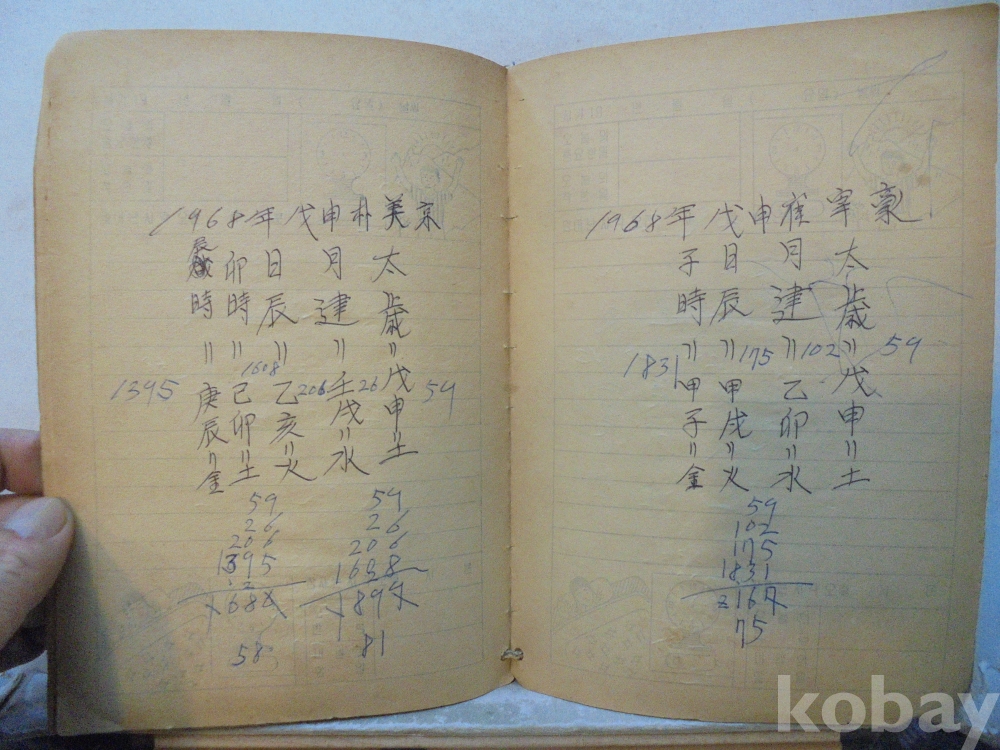 1968年戊申朴美京
太歲=戊申=土
59
月建=壬戌=水
26
日辰=乙亥=火
206
卯時=己卯=土
1608
辰時=庚辰=金
1395
59
26
206
1395
168
58
59
26
206
189
81
1968年戊申崔宰豪
太歲=戊申=土
59
月建=乙卯=水
102
日辰=甲戌=火
175
子時=甲子=金
1831
59
102
175
1831
216
75
kobay